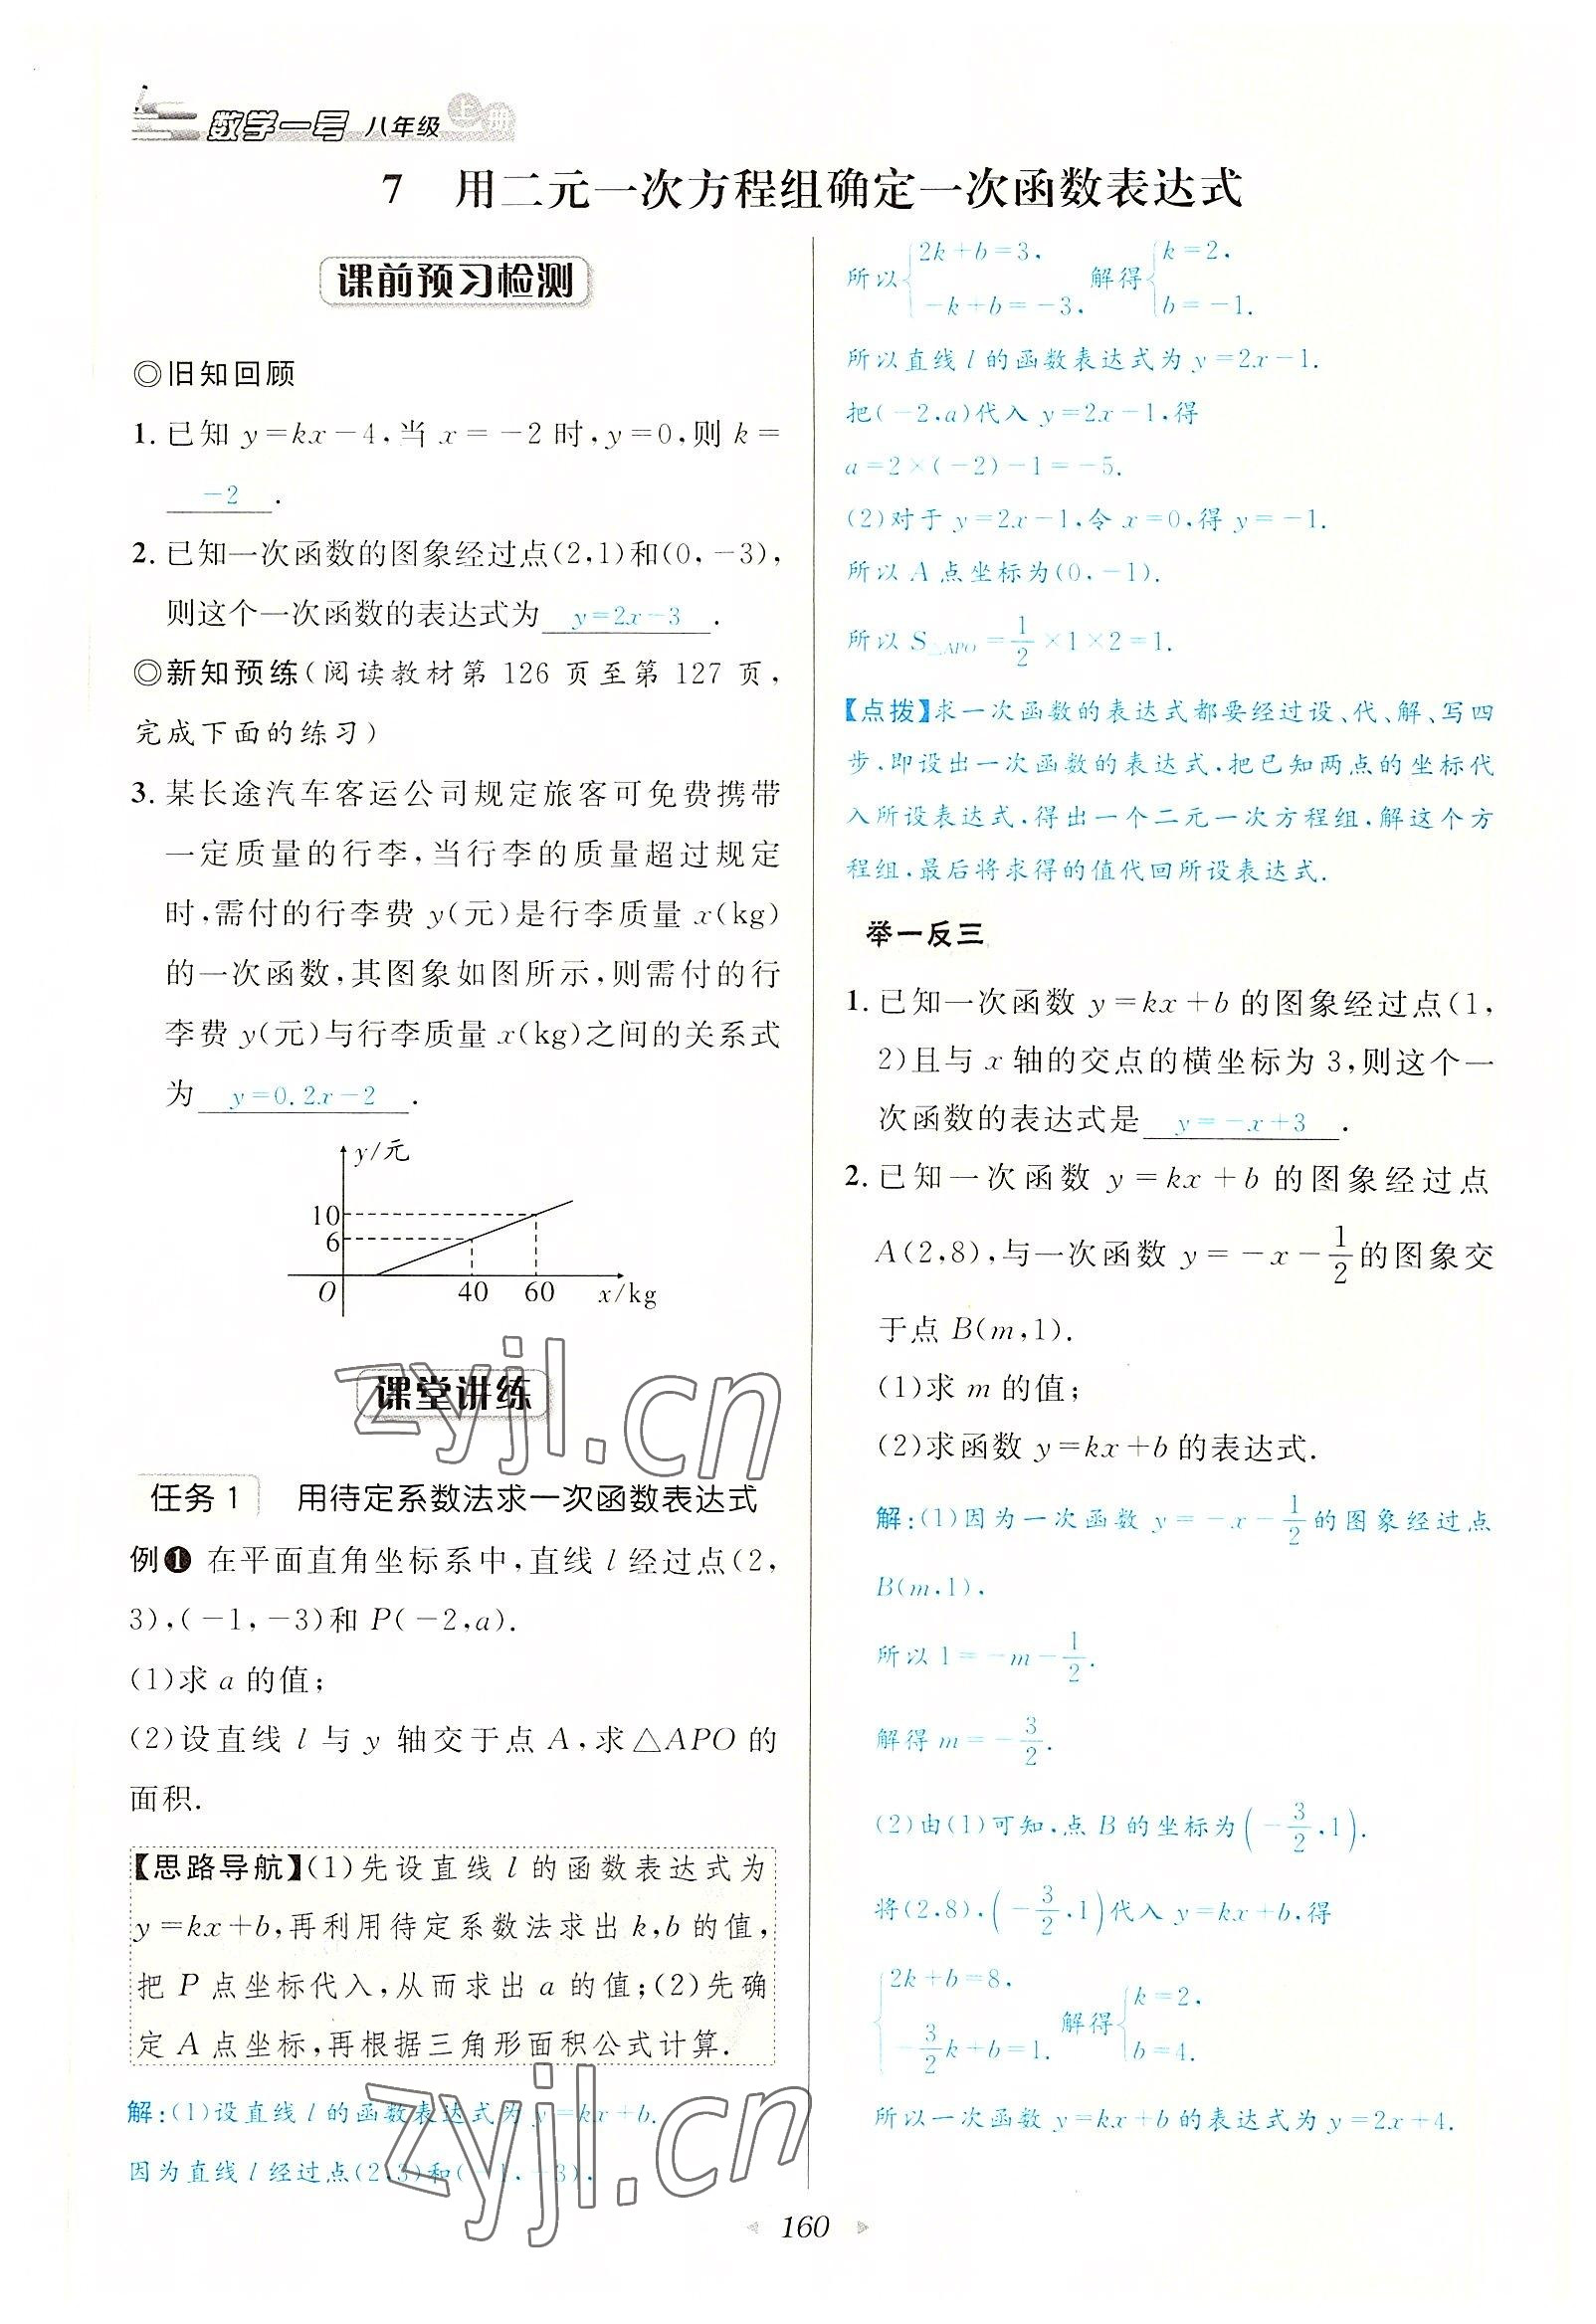 数学一号 八年级 上册
7 用二元一次方程组确定一次函数表达式
课前预习检测
◎旧知回顾
1. 已知 y=kx-4,当 x=-2 时,y=0,则 k=
-2 .
2. 已知一次函数的图象经过点(2,1)和(0,-3),
则这个一次函数的表达式为 y=2x-3 .
◎新知预练(阅读教材第 126 页至第 127 页,
完成下面的练习)
3. 某长途汽车客运公司规定旅客可免费携带
一定质量的行李,当行李的质量超过规定
时,需付的行李费 y(元)是行李质量 x(kg)
的一次函数,其图象如图所示,则需付的行
李费 y(元)与行李质量 x(kg)之间的关系式
为 y=0.2x-2 .
y/元
10
6
O 40 60 x/kg
课堂讲练
zyjl.cn
任务1 用待定系数法求一次函数表达式
例❶ 在平面直角坐标系中,直线 l 经过点(2,
3),(-1,-3)和 P(-2,a).
(1)求 a 的值;
(2)设直线 l 与 y 轴交于点 A,求△APO 的
面积.
【思路导航】(1)先设直线 l 的函数表达式为
y=kx+b,再利用待定系数法求出 k,b 的值,
把 P 点坐标代入,从而求出 a 的值;(2)先确
定 A 点坐标,再根据三角形面积公式计算.
解:(1)设直线 l 的函数表达式为 y=kx+b.
因为直线 l 经过点(2,3)和(-1,-3),
zyjl.cn
所以{2k+b=3, -k+b=-3, 解得{k=2, b=-1.
所以直线 l 的函数表达式为 y=2x-1.
把(-2,a)代入 y=2x-1,得
a=2×(-2)-1=-5.
(2)对于 y=2x-1,令 x=0,得 y=-1.
所以 A 点坐标为(0,-1).
所以 S△APO=1/2×1×2=1.
【点拨】求一次函数的表达式都要经过设、代、解、写四
步,即设出一次函数的表达式,把已知两点的坐标代
入所设表达式,得出一个二元一次方程组,解这个方
程组,最后将求得的值代回所设表达式.
举一反三
1. 已知一次函数 y=kx+b 的图象经过点(1,
2)且与 x 轴的交点的横坐标为 3,则这个一
次函数的表达式是 y=-x+3 .
2. 已知一次函数 y=kx+b 的图象经过点
A(2,8),与一次函数 y=-x-1/2的图象交
于点 B(m,1).
(1)求 m 的值;
(2)求函数 y=kx+b 的表达式.
解:(1)因为一次函数 y=-x-1/2的图象经过点
B(m,1),
所以 1=-m-1/2.
解得 m=-3/2.
(2)由(1)可知,点 B 的坐标为(-3/2,1).
将(2,8),(-3/2,1)代入 y=kx+b,得
{2k+b=8, -3/2k+b=1. 解得{k=2, b=4.
所以一次函数 y=kx+b 的表达式为 y=2x+4.
160